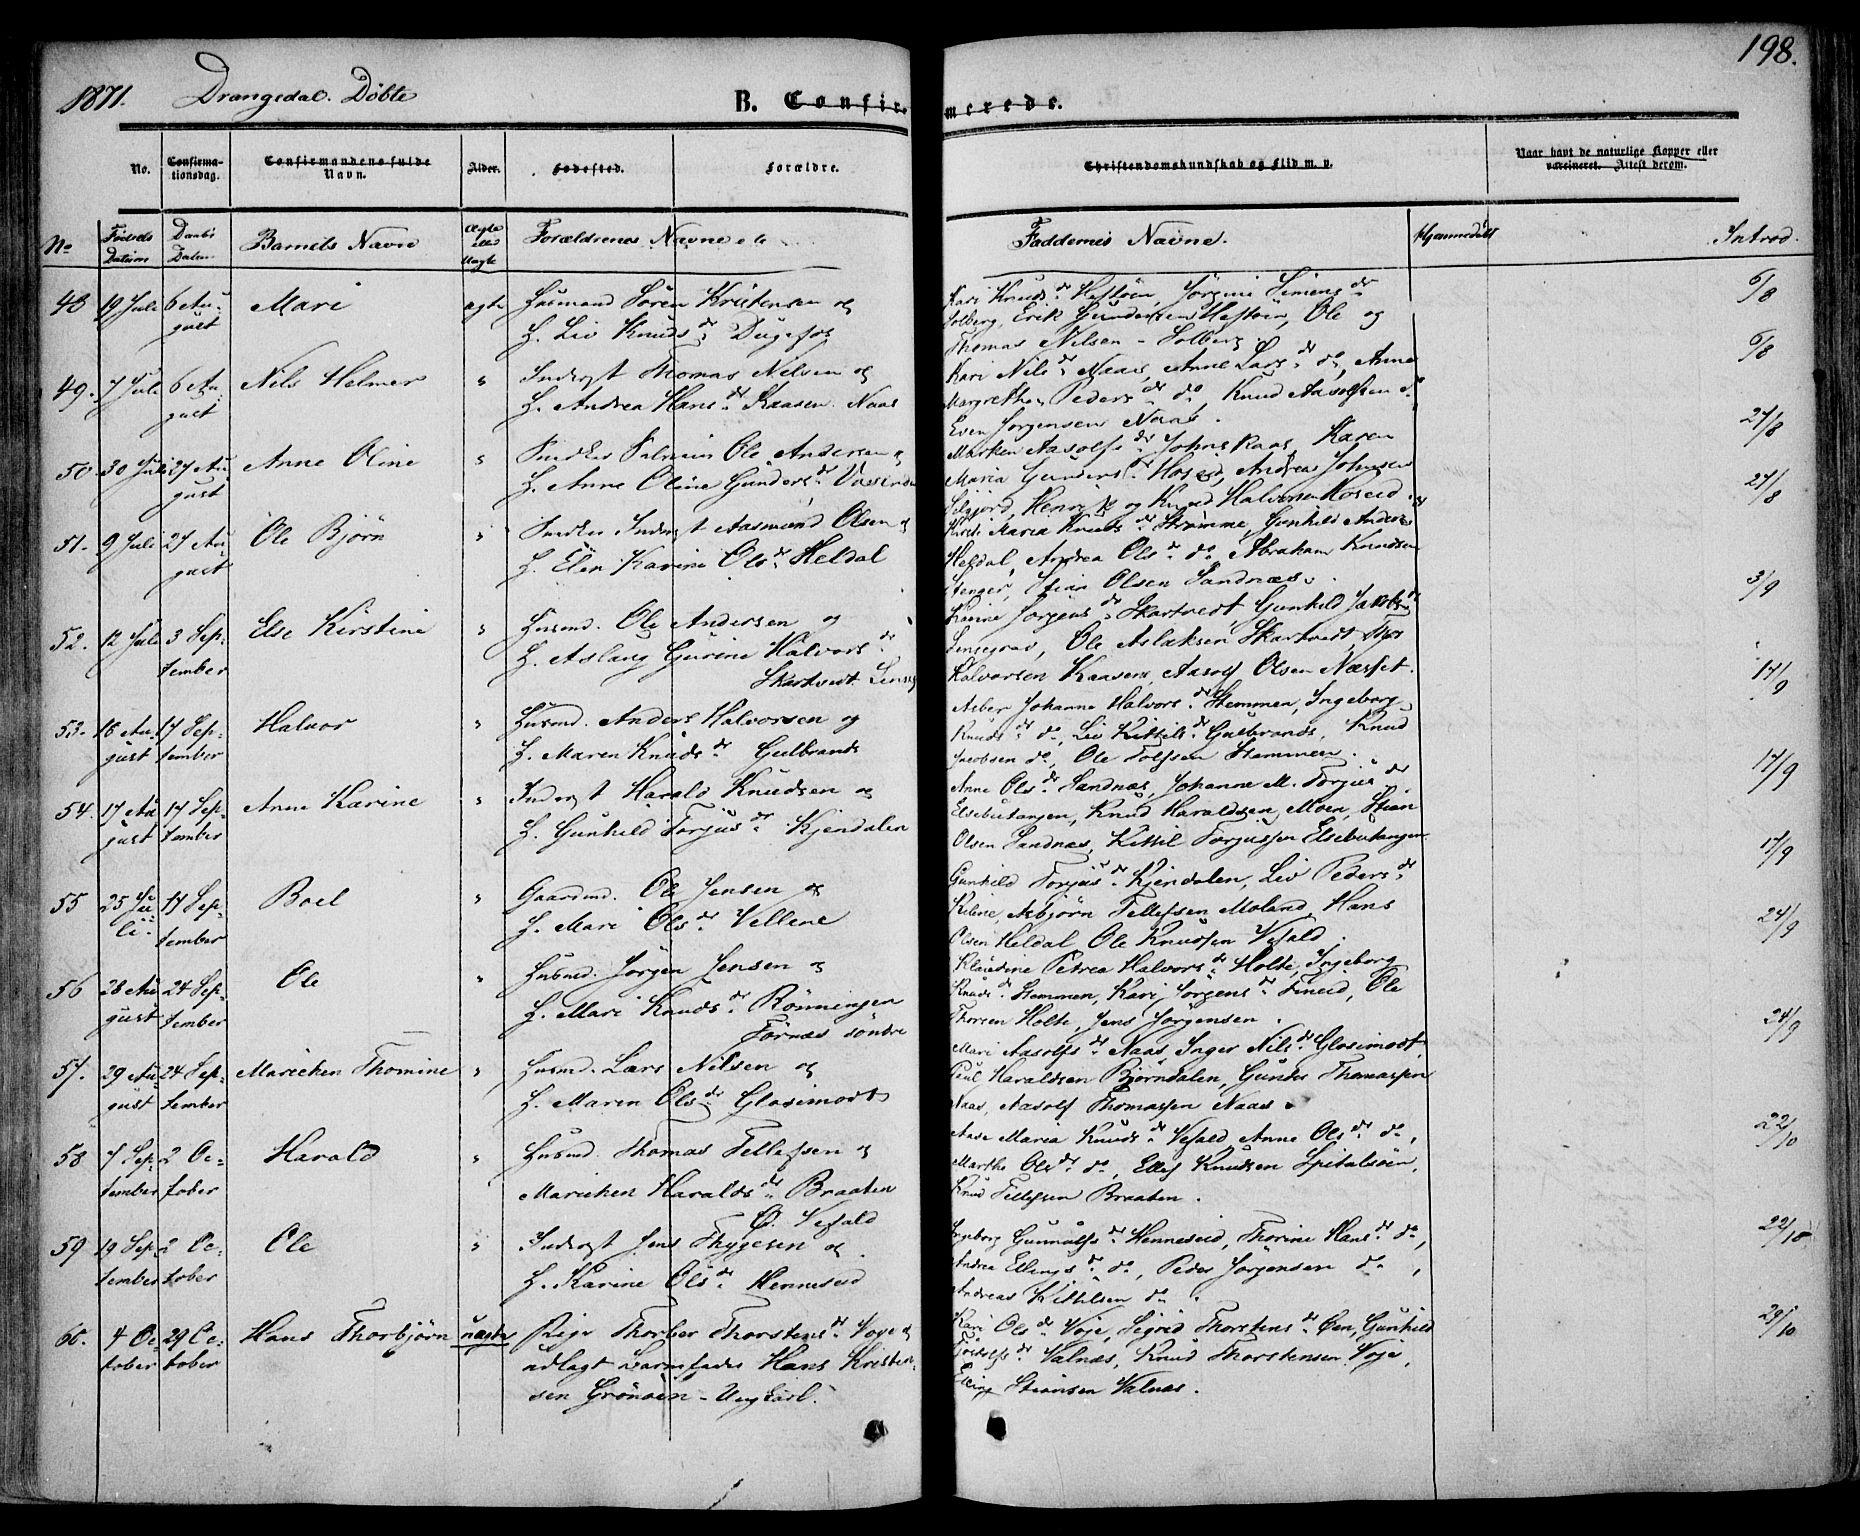 198.
1871. Drangedal. Døbte
B. Confirmerede.
No. Confirma-tionsdag. Confirmandens fulde Navn. Alder. Fødested. Forældre. Christendomskundskab og Flid m. v. Naar havt de naturlige Kopper eller vaccineret. Attest derom.
No Fødsels Datum Daabs Datum Barnets Navn Ægte eller Uægte Forældrenes Navne Faddernes Navne. Hjemmedøbt Introd.
48 19 Juli 6 August Mari ægte Husmand Sören Kristensen og
H. Liv Knudsdr Dugefos
Kari Knudsdr Heftöen, Jörgine Simensdr
Solberg, Erik Gundersen Heftöen, Ole og
Thomas Nilsen - Solberg
6/8
49. 7 Juli 6 August Nils Helmer " Inderst Thomas Nilsen og
H. Andrea Hansdr Kaasen. Naas
Kari Nilsdr Naas, Anne Larsdr do, Anne
Margrethe Pedersdr do, Knud Aasolfsen do
Even Jörgensen Naas.
6/8
50. 30 Juli 27 August Anne Oline " Ole Andersen og
H. Anne Oline Gundersdr
Marken Aasolfsdr Johnskaas, Karen
Maria Gundersdr Hoseid, Andreas Johnsen
Henrik og Knud Halvorsen Hoseid.
27/8
51. 9 Juli 27 August Ole Bjørn " Inderst Aasmund Olsen og
H. Elen Karine Olsdr Heldal
Maria Knudsdr Strømme, Gunhild Anders
Heldal, Andrea Olsdr do, Abraham Knudsen
Stenger, Stian Olsen Sandnæs.
27/8
52. 12 Juli 3 September Else Kirstine " Husmd. Ole Andersen og
H. Aslaug Gurine Halvorsdr
Skartvedt
Karine Jørgensdr Skartvedt, Gunhild Jakobsdr
Ole Aslaksen Skartvedt,
Halvorsen Kaasen, Aasolf Olsen Næsset.
3/9
53. 16 August 17 September Halvor " Husmd. Anders Halvorsen og
H. Maren Knudsdr Gulbrands
Johanne Halvorsdr Stemmen, Ingeborg
Knudsdr do, Liv Kittilsdr Gulbrands, Knud
Jacobsen do, Ole Tolfsen Stemmen.
17/9
54. 17 August 17 September Anne Karine " Inderst Harald Knudsen og
H. Gunhild Torjusdr Kjendalen
Anne Olsdr Sandnæs, Johanne M. Torjusdr
Elsebutangen, Knud Haraldsen Moen, Stian
Olsen Sandnæs, Kittil Torjussen Elsebutangen
17/9
55 25 Juli 17 September Boel " Gaardmd. Ole Jensen og
H. Mari Olsdr Vellene
Gunhild Torjusdr Kjendalen, Liv Pedersdr
Kilene, Asbjørn Tellefsen Moland, Hans
Olsen Heldal Ole Knudsen Vefald.
17/9
56 28 August 24 September Ole " Husmd. Jörgen Jensen og
H. Mari Knudsdr Rönningen
Törnæs söndre
Klaudine Petrea Halvorsdr Holte, Ingeborg
Knudsdr Stemmen, Kari Jörgensdr Tineid, Ole
Thorsen Holte, Jens Jörgensen.
24/9
57. 29 August 24 September Mariehen Thomine " Husmd. Lars Nilsen og
H. Maren Olsdr Glosimodt
Mari Aasolfsdr Naas, Inger Nilsdr Glosimodt,
Paul Haraldsen Bjørndalen, Gunder Thomassen
Naas, Aasolf Thomassen Naas.
24/9
58 7 September 2 October Harald " Husmd. Thomas Tellefsen og
Mariehen Haraldsdr Braaten
Ø. Vefald
Aase Maria Knudsdr Vefald, Anne Olsdr do,
Marthe Olsdr do, Ellef Knudsen Spitalsöen,
Knud Tellefsen Braaten.
22/10
59 19 September 2 October Ole " Inderst Jens Thygesen og
H. Karine Olsdr Henneseid
Ingeborg Gunnulfsdr Henneseid, Thorine Hansdr do,
Andrea Ellingsdr do, Peder Jörgensen do,
Andreas Kittilsen do.
22/10
60. 4 October 29 October Hans Thorbjørn uægte Pige Thorber Thorstensdr Voje og
udlagt Barnefader Hans Kristen-
sen Grönöen - Ungkarl.
Kari Olsdr Voje, Sigrid Thorstensdr Öen, Gunhild
Valnæs, Knud Thorstensen Voje,
Elling Stiansen Valnæs.
29/10